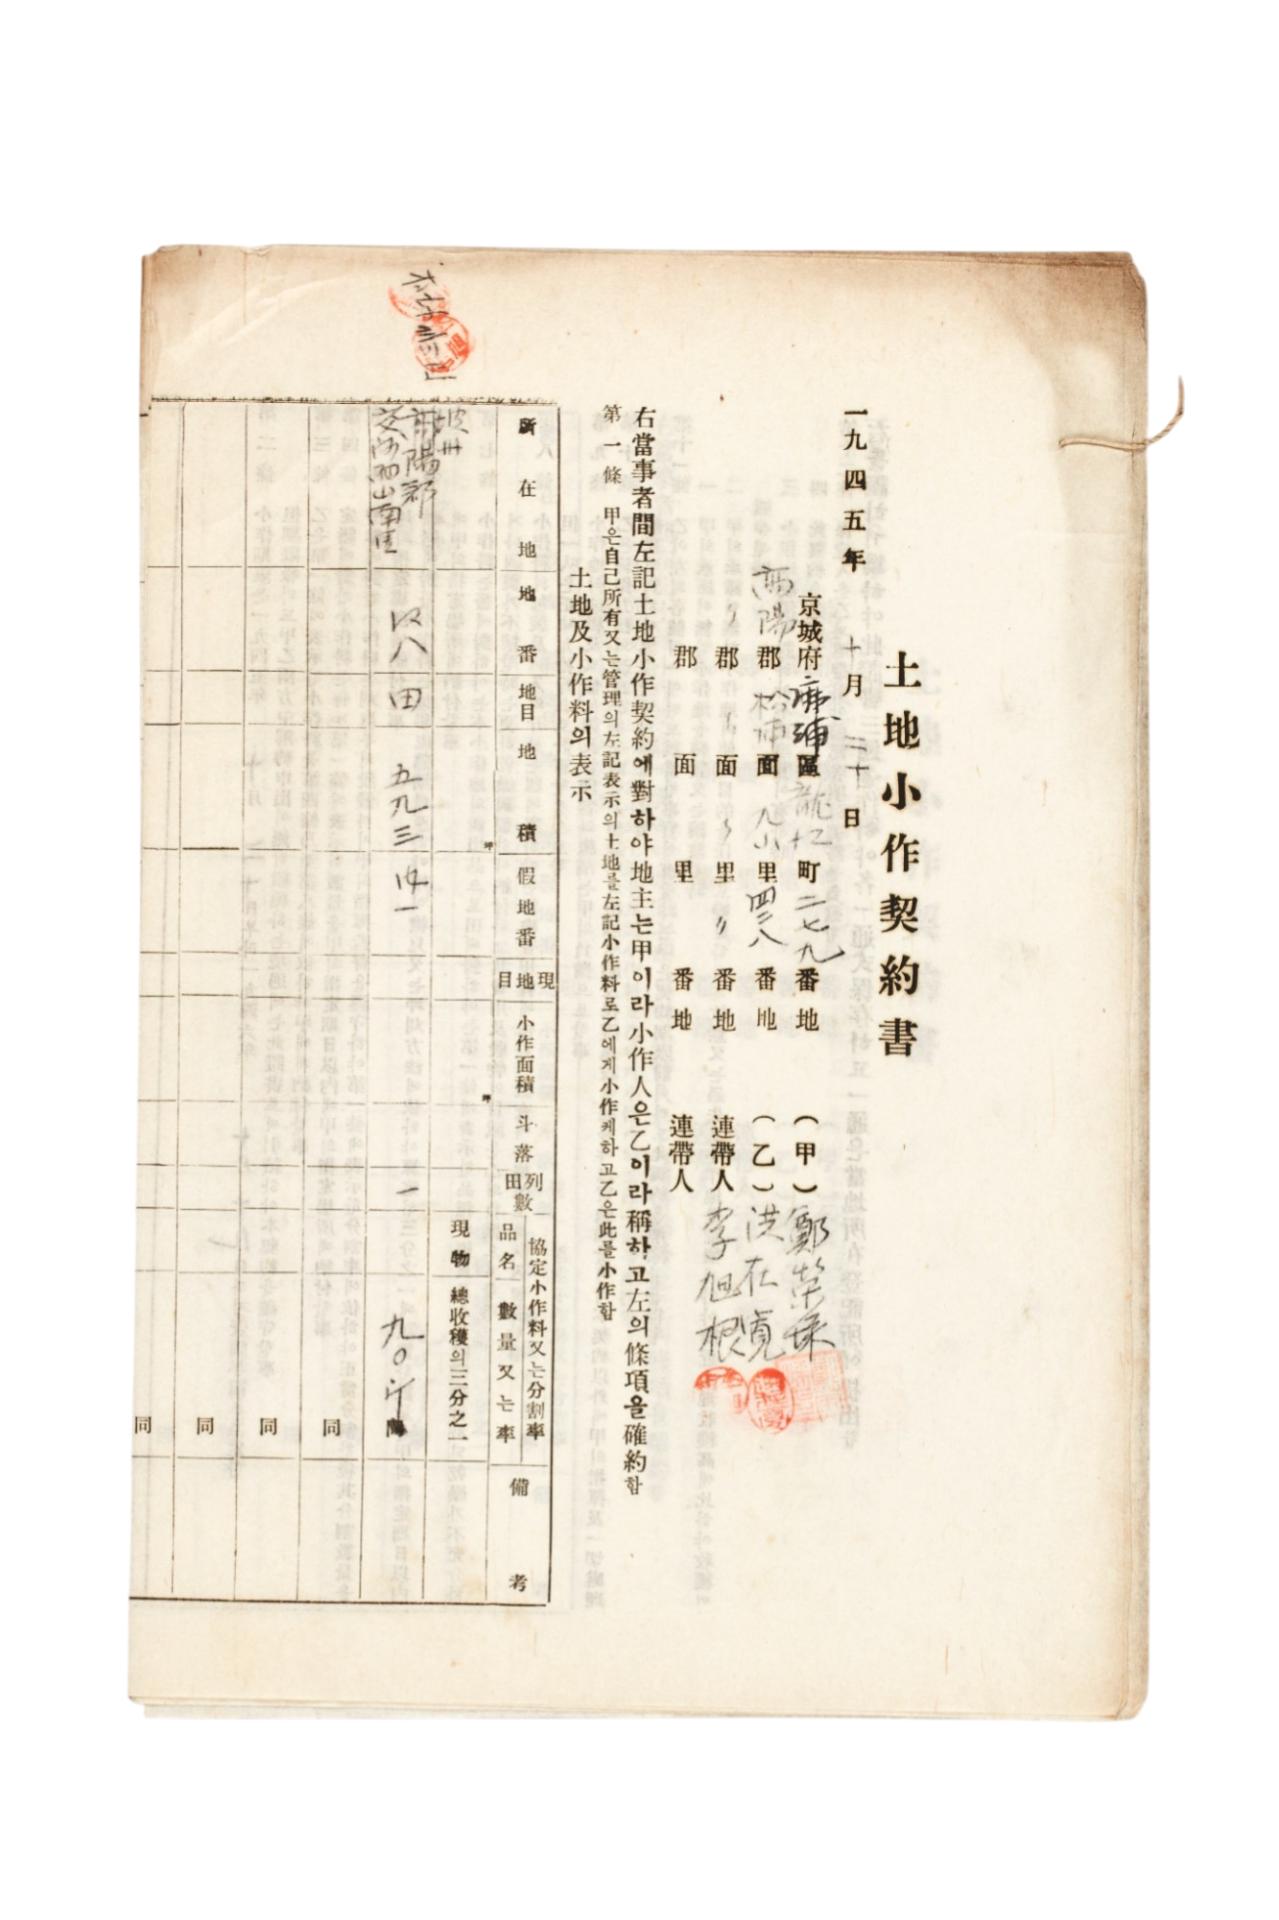 土地小作契約書
一九四五年 十月 二十日
京城府 麻浦區 龍江町 二七九番地 (甲) 鄭
高陽郡 松浦面 九山里 四三八番地 (乙) 洪在
〃郡 〃面 〃里 〃番地 連帶人 李旭根
郡 面 里 番地 連帶人
右當事者間左記土地小作契約에對하야地主는甲이라小作人은乙이라稱하고左의條項을確約함
第一條 甲은自己所有又는管理의左記表示의土地를左記小作料로乙에게小作케하고乙은此를小作함
土地及小作料의表示
所在地 地番 地目 地積 假地番 現地目 小作面積 斗落 列田數 協定小作料又는分割率 品名 數量又는率 備考
坪 坪 現物 總收穫의三分之一
坡州
陽郡
南里 八 田 五九三 一 一 九〇斤
同
同
同
同